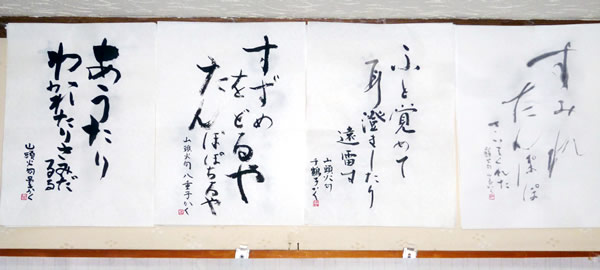 あうたり
わかれたりさみだ
るる
山頭火句
すずめ
をどるや
たんぽぽちるや
山頭火句 八重子かく
ふと覚めて
耳澄ましたり
遠雷す
山頭火句
千鶴子かく
すみれ
たんぽぽ
さいてくれた